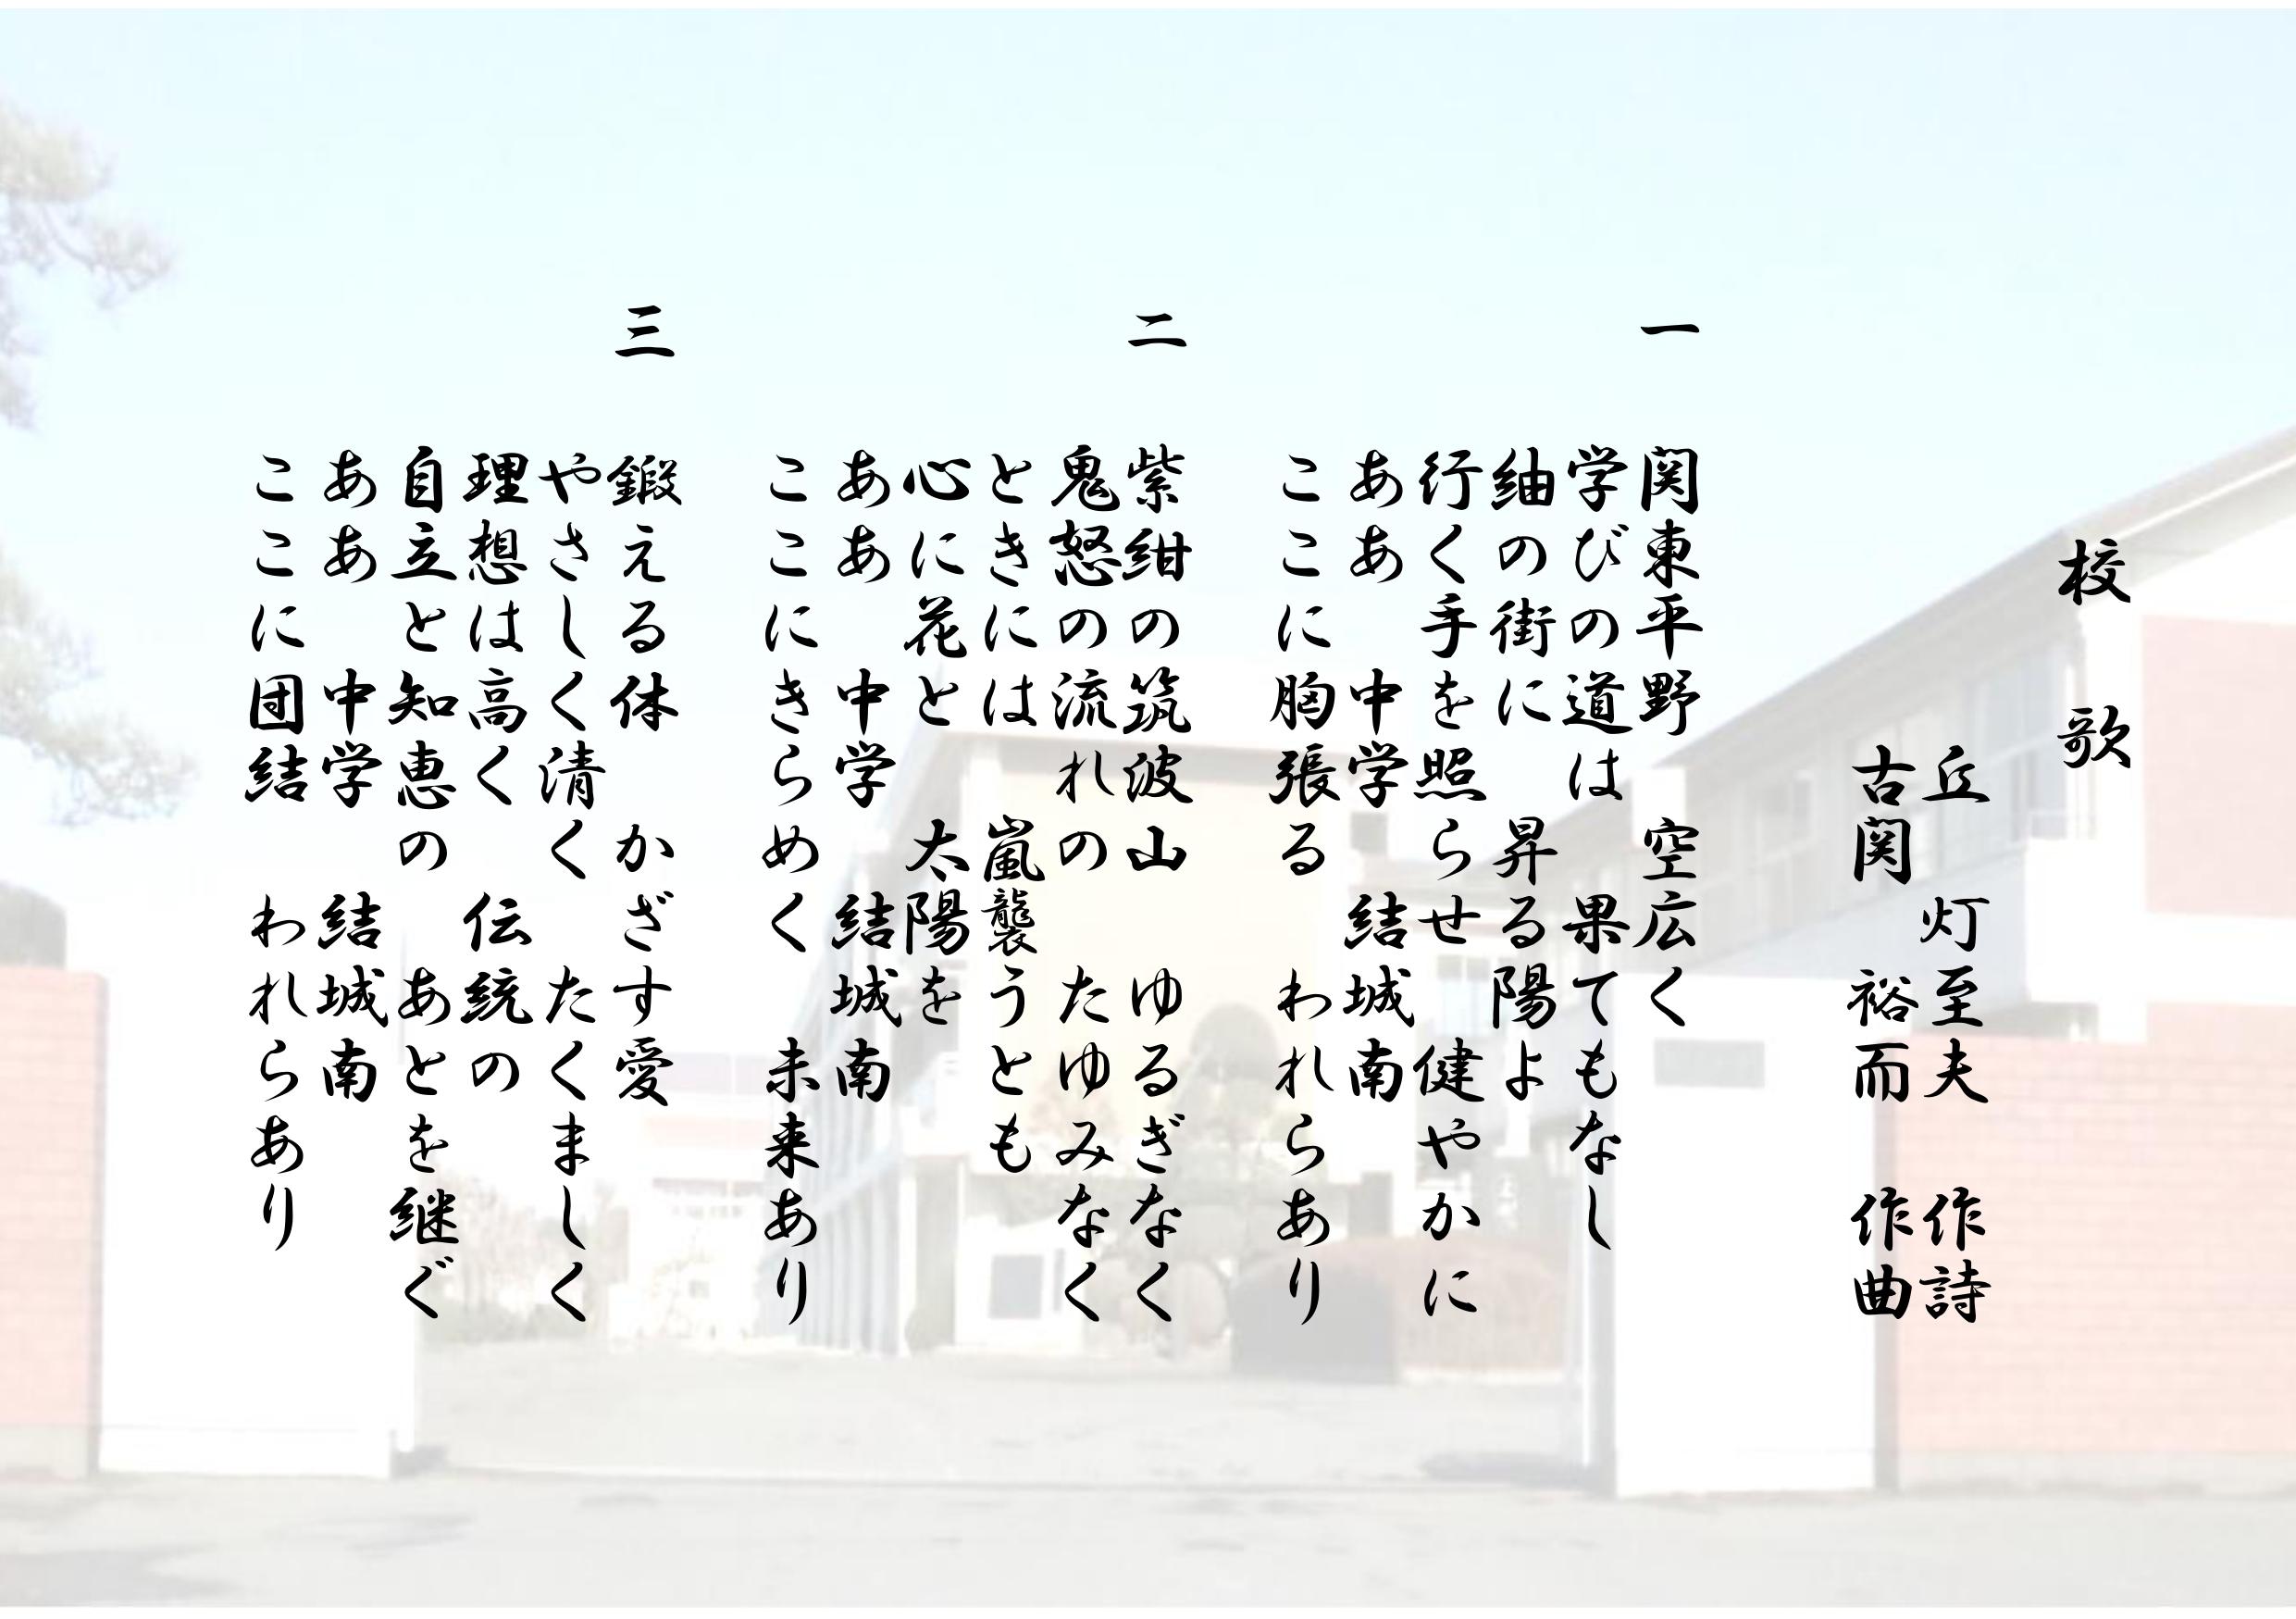 校 歌
丘 灯至夫 作詩
古関 裕而 作曲
一 関東平野 空広く
学びの道は 果てもなし
紬の街に 昇る陽よ
行く手を照らせ 健やかに
ああ 中学 結城南
ここに胸張る われらあり
二 紫紺の筑波山 ゆるぎなく
鬼怒の流れの たゆみなく
ときには 嵐襲うとも
心に花と 太陽を
ああ 中学 結城南
ここにきらめく 未来あり
三 鍛える体 かざす愛
やさしく清く たくましく
理想は高く 伝統の
自立と知恵の あとを継ぐ
ああ 中学 結城南
ここに団結 われらあり